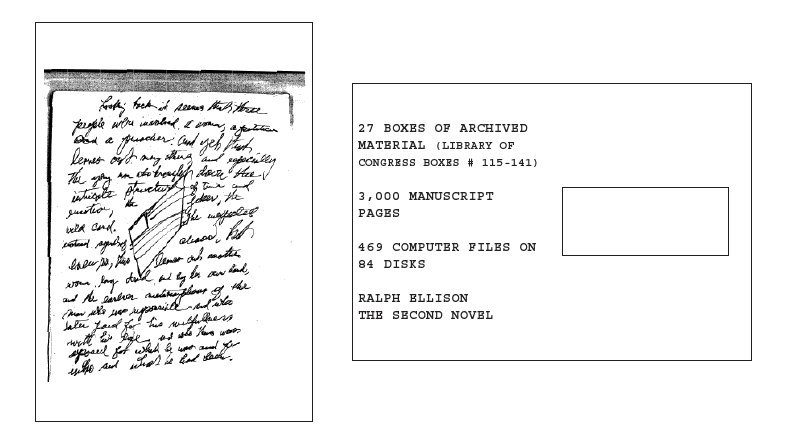 Looking back it seems that three
people were involved, a woman, a politician
and a preacher. And yet that
leaves out many things and especially
the young man who brought down the
intricate structure of time and
emotion, the joker, the
wild card, the neglected
enemies, this leaves out another
woman long dead, and by her own hand,
and the earlier metamorphoses of the
man who was responsible and who
later paid for his willfulness
with his life and who thus was
exposed for which he was and for
who and what he had been.
27 BOXES OF ARCHIVED
MATERIAL (LIBRARY OF
CONGRESS BOXES # 115-141)
3,000 MANUSCRIPT
PAGES
469 COMPUTER FILES ON
84 DISKS
RALPH ELLISON
THE SECOND NOVEL